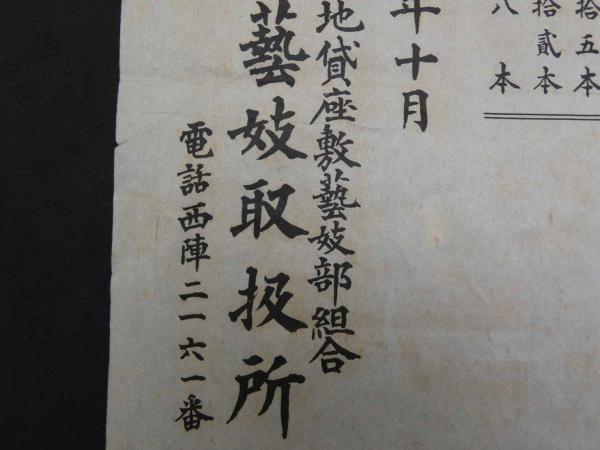 拾五本
拾貳本
八本
年十月
地貸座敷藝妓部組合
藝妓取扱所
電話西陣二一六一番